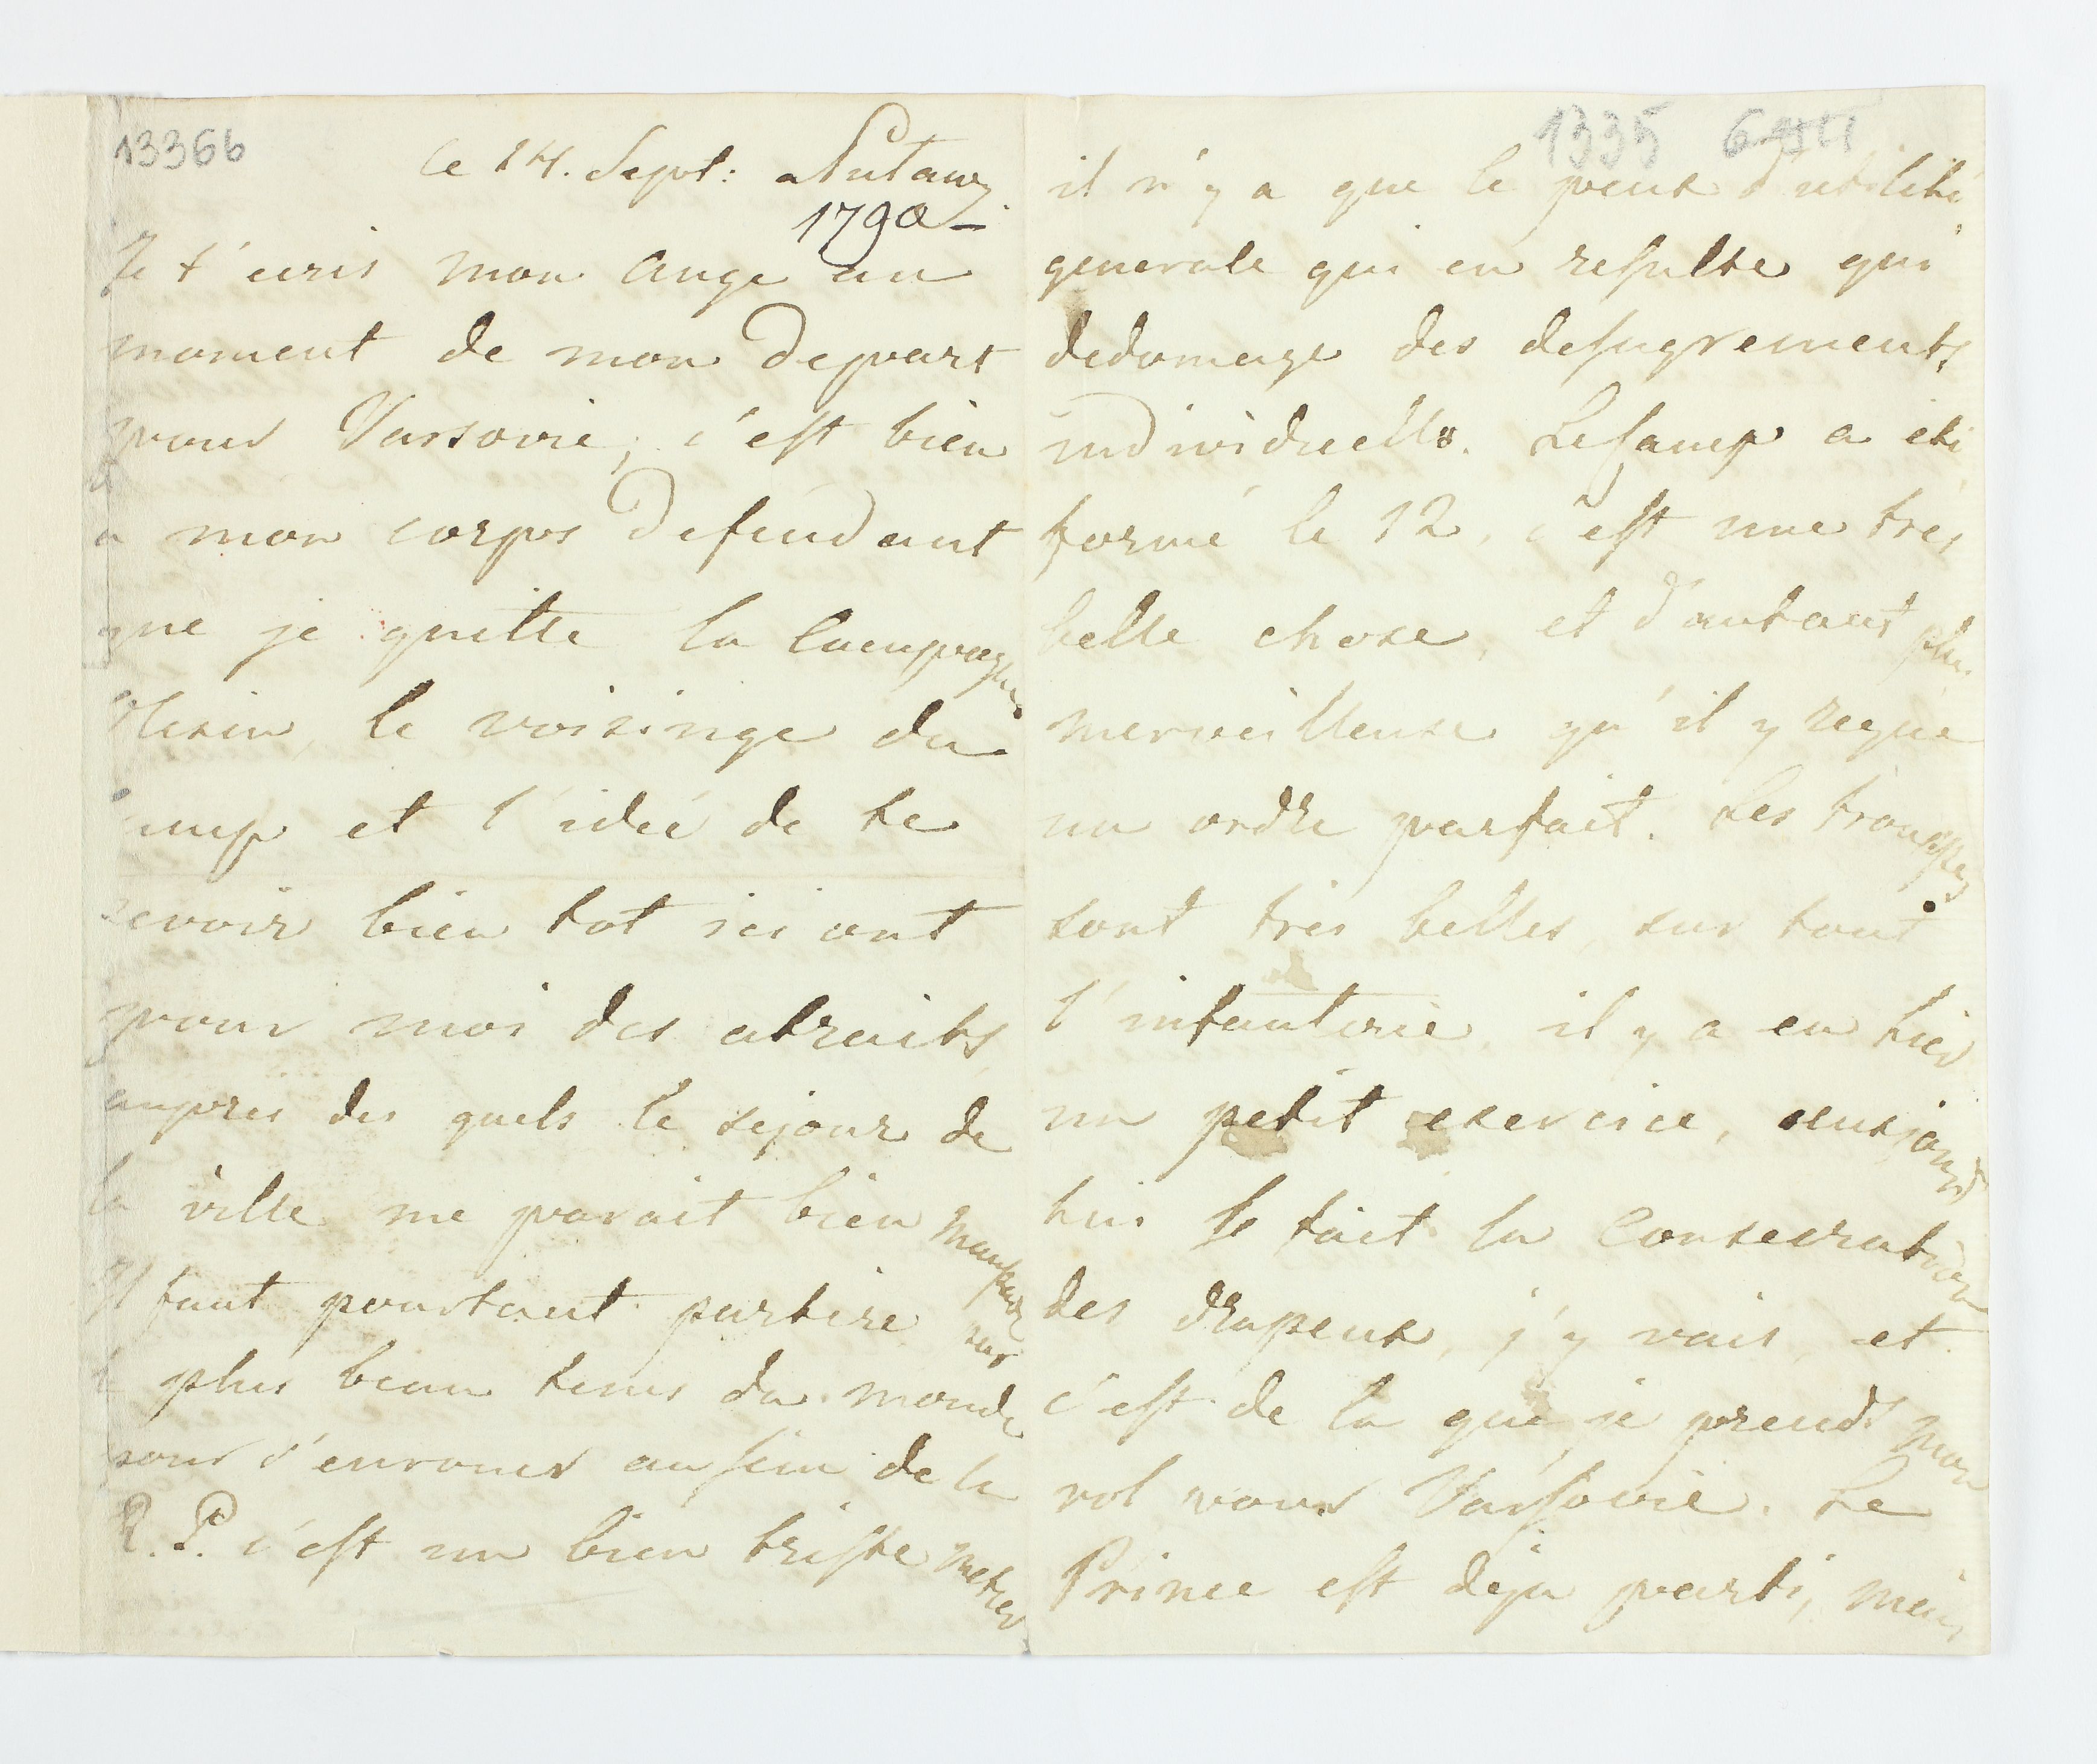 13366
ce 14. Sept: Pulawy
1790
Je t'ecris mon Ange au
moment de mon Depart
pour Varsovie, c'est bien
a mon corps Defendant
que je quitte la Campagne
le voisinage du
camp et l'idée de te
revoir bien tot ici ont
pour moi des atraits
aupres des quels le sejour de
la ville me parait bien maussade
Il faut pourtant partire sur
le plus beau tems du monde
pour s'enrouer au sein de la
R. P. c'est un bien triste metier
1335
il n'y a que le peux d'utilité
generale qui en resulte qui
dedomage des desagrements
individuells. Le camp a eté
formé le 12, c'est une tres
belle chose, et d'autant plus
merveilleuse qu'il y regne
un ordre parfait. Les trouppes
sont tres belles, sur tout
l'infanterie, il y a eu hier
un petit exercice, aujourd
hui se fait la Consecration
des drapeux, j'y vais, et
c'est de la que je prends mon
vol pour Varsovie. Le
Prince est deja parti, mais